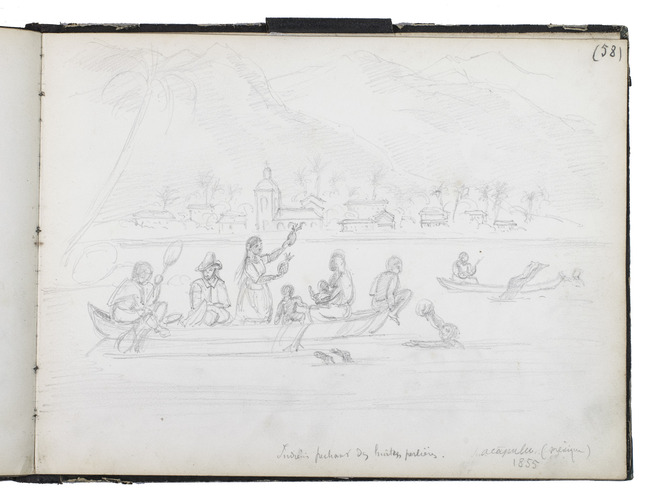 (58)
Indiens pechant des huîtres perlières.
Acapulco. (Mexique)
1855